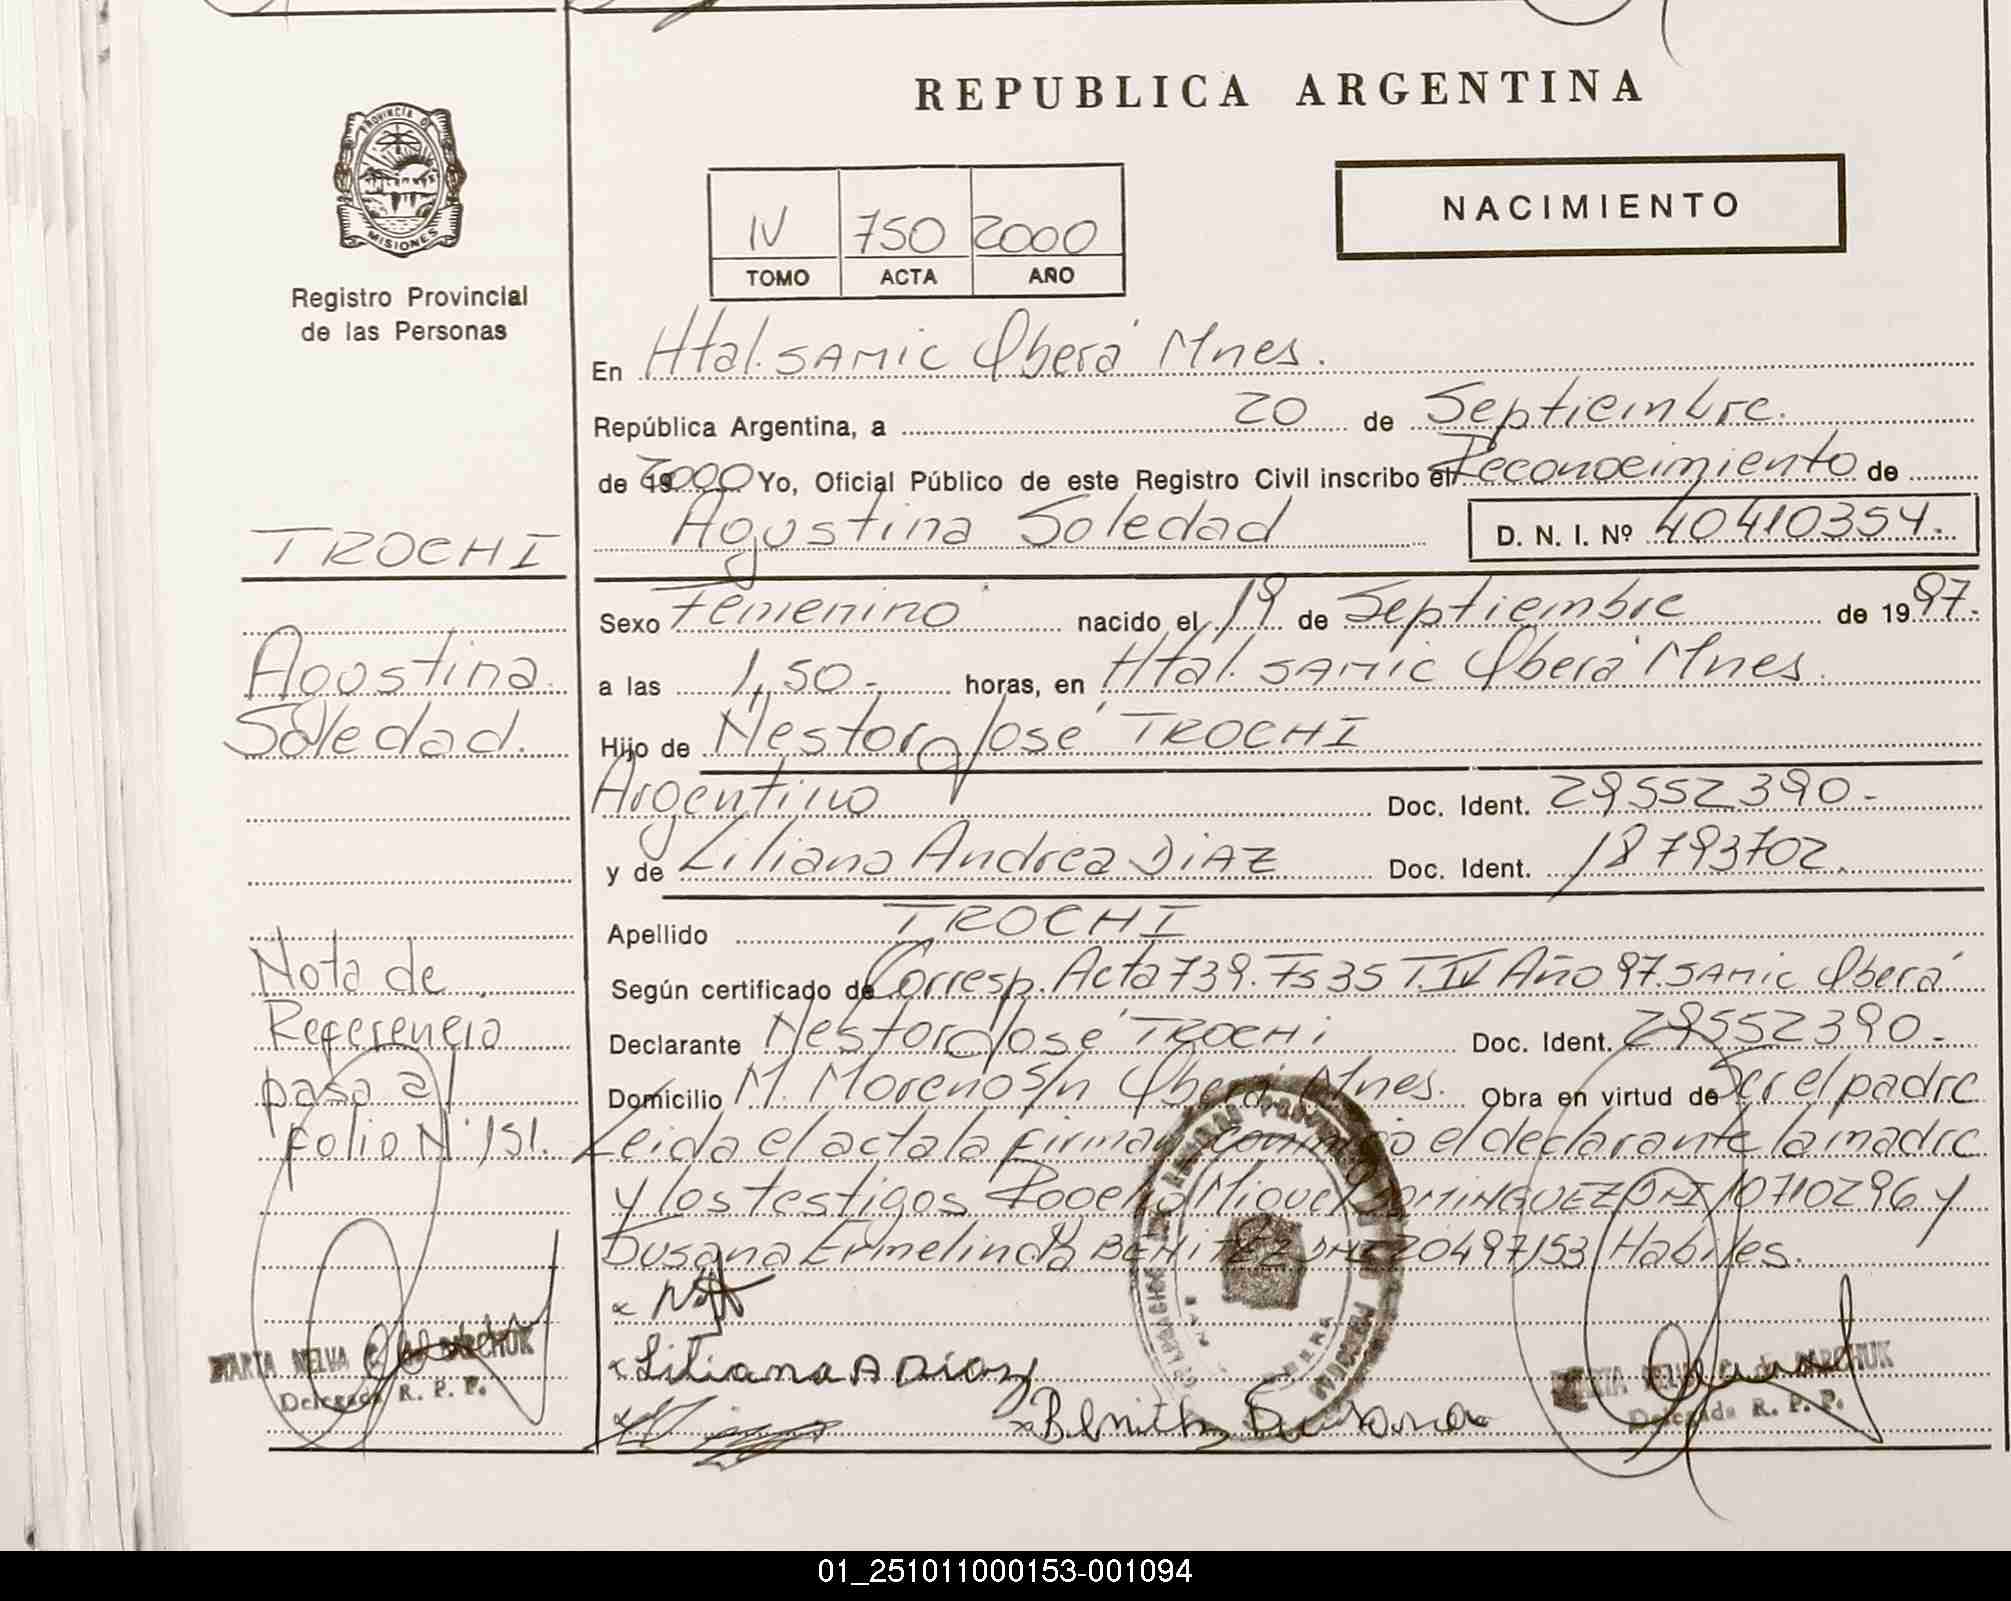 REPUBLICA ARGENTINA
PROVINCIA DE
MISIONES
Registro Provincial
de las Personas
NACIMIENTO
IV 750 2000
TOMO ACTA AÑO
En Htal. SAMIC Oberá Mnes.
República Argentina, a 20 de Septiembre.
de 19 2000 Yo, Oficial Público de este Registro Civil inscribo el Reconocimiento de
Agustina Soledad D. N. I. Nº 40410354.
TROCHI
Agustina
Soledad.
Sexo Femenino nacido el 19 de Septiembre de 1997.
a las 1,50 - horas, en Htal. SAMIC Oberá Mnes.
Hijo de Nestor José TROCHI
Argentino Doc. Ident. 29552390-
y de Liliana Andrea DiAZ Doc. Ident. 18793702.
Apellido TROCHI
Según certificado de Corresp. Acta 739. Fs 35 T. IV Año 97. SAMIC Oberá
Declarante Nestor José TROCHi Doc. Ident. 29552390-
Domicilio M. Moreno S/n Oberá Mnes. Obra en virtud de Ser el padre
Leida el acta la firman conmigo el declarante la madre
y los testigos Rogelio Miguel DOMINGUEZ DNI 10710296 y
Susana Ermelinda BENITEZ DNI 20497153 Habiles.
Nota de
Referencia
pasa al
folio Nº 151.
x Liliana A Diaz
x Benitez Susana
MARTA NELVA C. de BARCHUK
Delegada R. P. P.
MARTA NELVA C. de BARCHUK
Delegada R. P. P.
01_251011000153-001094